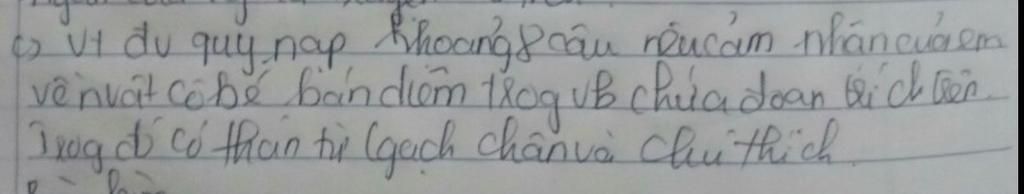 c) Vt đv quy nạp khoảng 8 câu nêu cảm nhận của em
về nvật cô bé bán diêm trog VB chứa đoạn trích trên.
Trog đó có thán từ (gạch chân và chú thích